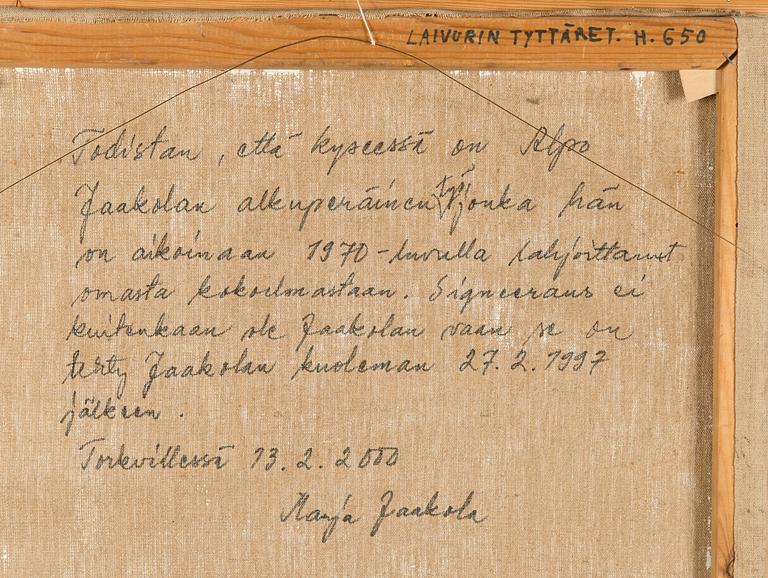 LAIVURIN TYTTÄRET. H. 650
Todistan, että kyseessä on Alpo
Jaakolan alkuperäinen työ jonka hän
on aikoinaan 1970-luvulla lahjoittanut
omasta kokoelmastaan. Signeeraus ei
kuitenkaan ole Jaakolan vaan se on
tehty Jaakolan kuoleman 27.2.1997
jälkeen.
13.2.2000
Marja Jaakola